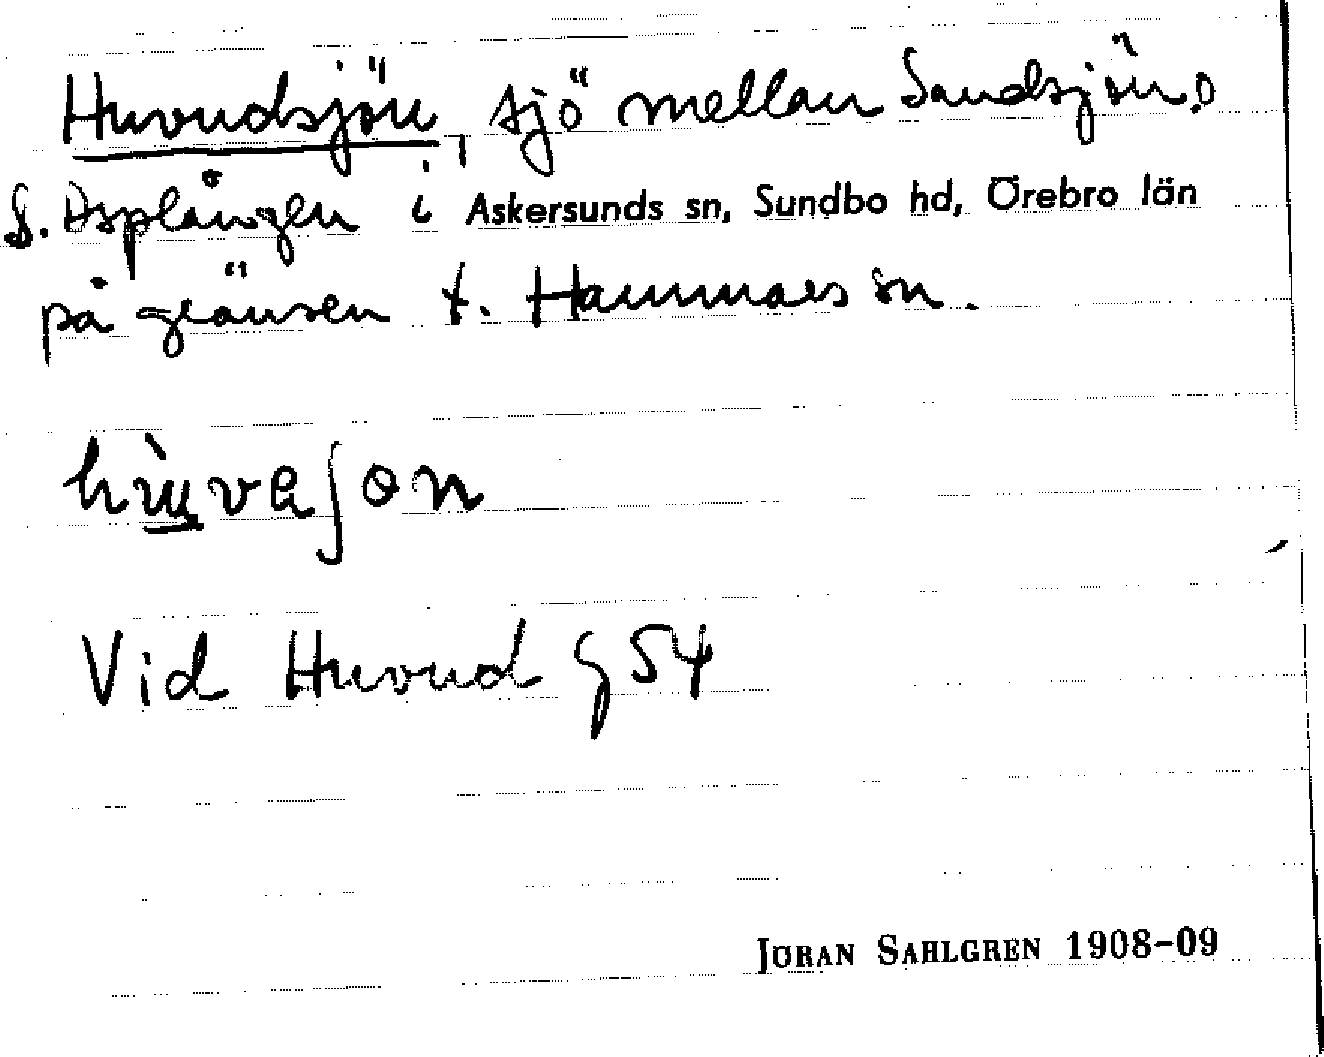 Huvudsjön, sjö mellan Sandsjön o
S. Asplången i Askersunds sn, Sundbo hd, Örebro län
på gränsen t. Hammars sn.
Vid Huvud g 54
JÖRAN SAHLGREN 1908-09